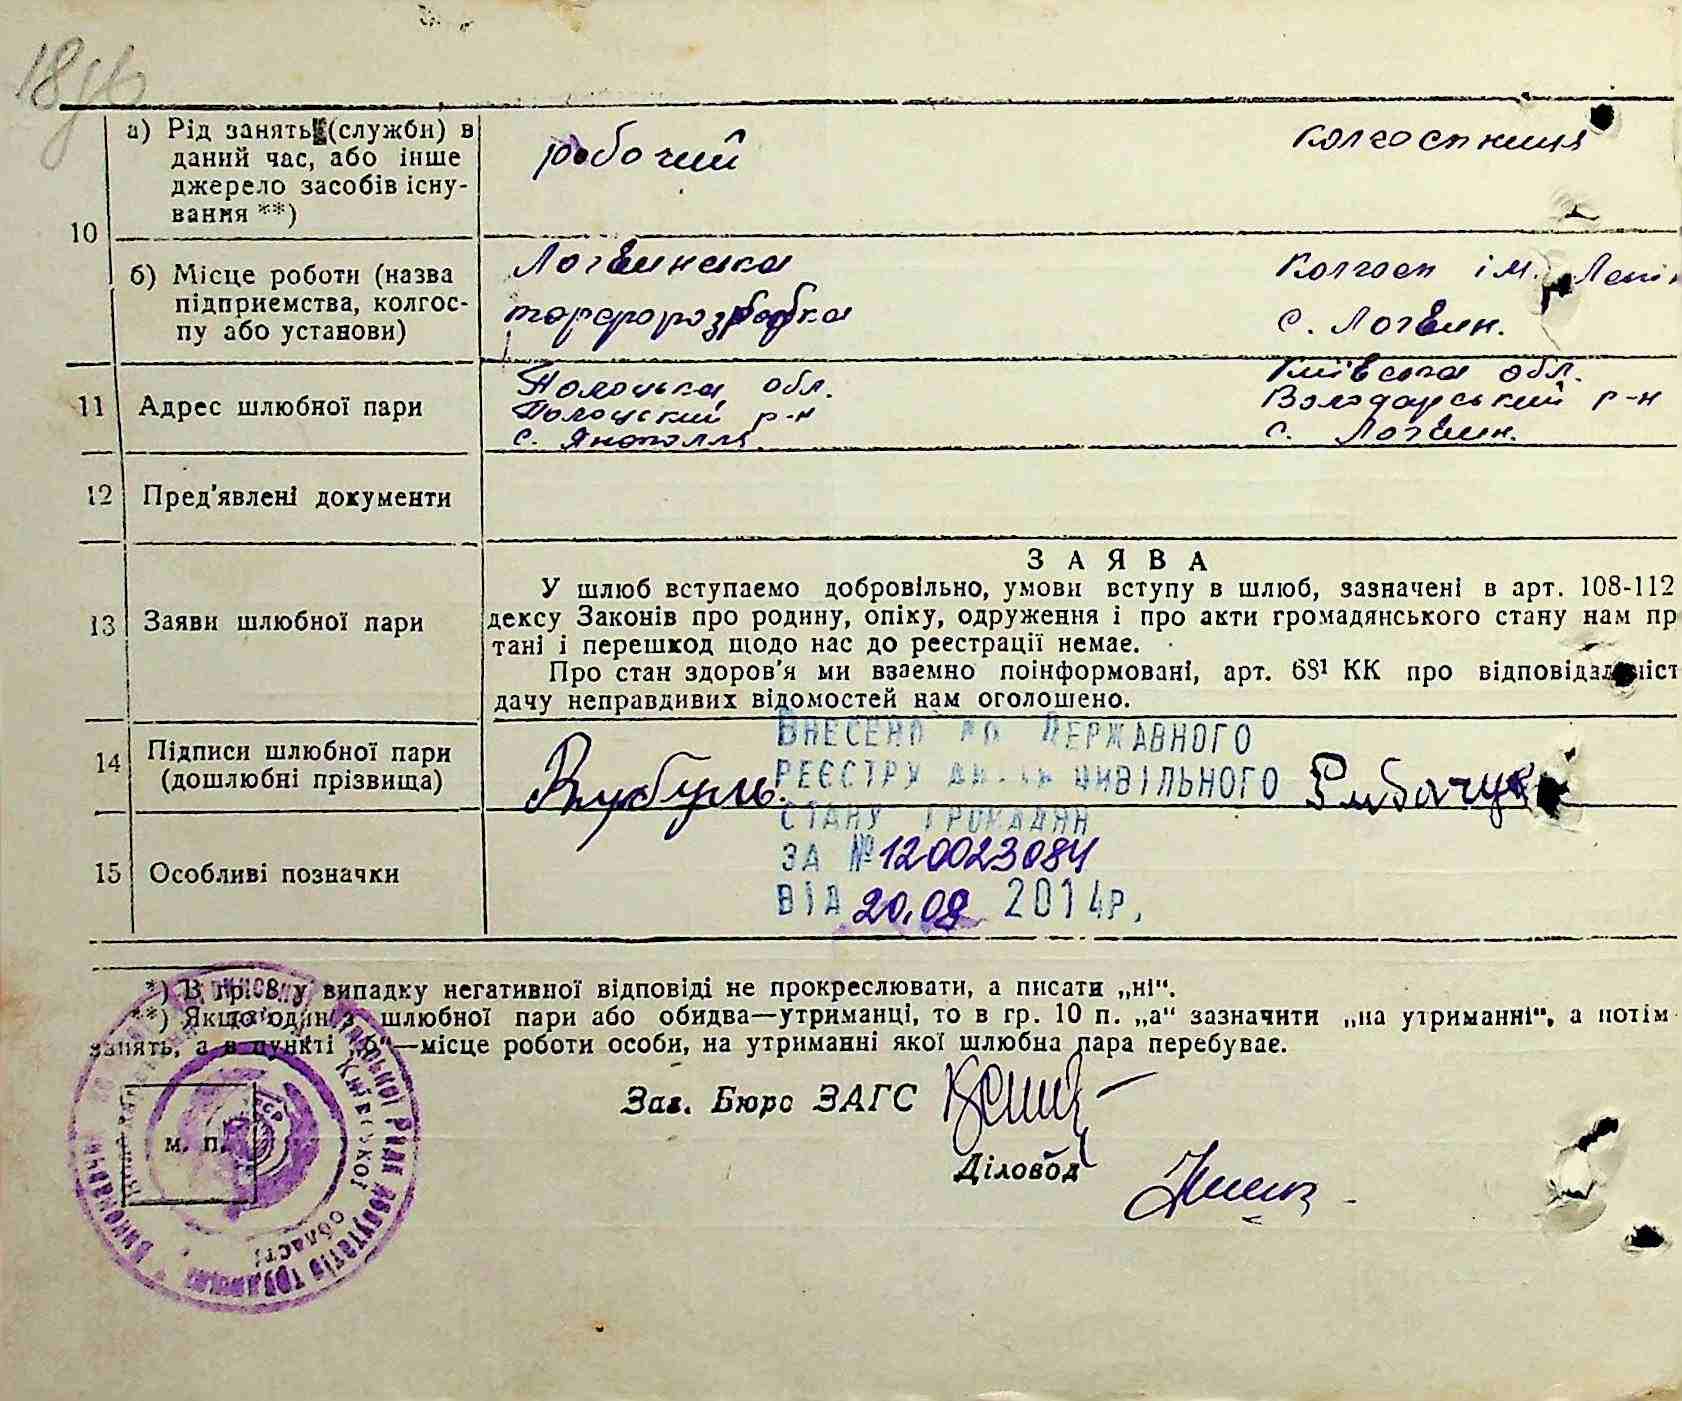 18
а) Рід занять (служби) в
даний час, або інше
джерело засобів існу-
вання **)
робочий
колгоспниця
10
б) Місце роботи (назва
підприємства, колгос-
пу або установи)
Логвинська
торфорозробка
Колгосп ім. Лені
с. Логвин.
11
Адрес шлюбної пари
Полоцька обл.
Полоцский р-н
с. Янополля
Київська обл.
Володарський р-н
с. Логвин.
12
Пред'явлені документи
13
Заяви шлюбної пари
ЗАЯВА
У шлюб вступаємо добровільно, умови вступу в шлюб, зазначені в арт. 108-112
дексу Законів про родину, опіку, одруження і про акти громадянського стану нам пр
тані і перешкод щодо нас до реєстрації немає.
Про стан здоров'я ми взаємно поінформовані, арт. 68¹ КК про відповідальніст
дачу неправдивих відомостей нам оголошено.
14
Підписи шлюбної пари
(дошлюбні прізвища)
ВНЕСЕНО ДО ДЕРЖАВНОГО
РЕЄСТРУ АКТІВ ЦИВІЛЬНОГО
СТАНУ ГРОМАДЯН
ЗА № 120023084
ВІД 20.09 2014р.
15
Особливі позначки
*) В гр. 8 у випадку негативної відповіді не прокреслювати, а писати „ні“.
**) Якщо один з шлюбної пари або обидва—утриманці, то в гр. 10 п. „а“ зазначити „на утриманні“, а потім
занять, а в пункті „б“—місце роботи особи, на утриманні якої шлюбна пара перебуває.
Зав. Бюро ЗАГС
Діловод
м. п.
Київської області
депутатів трудящих